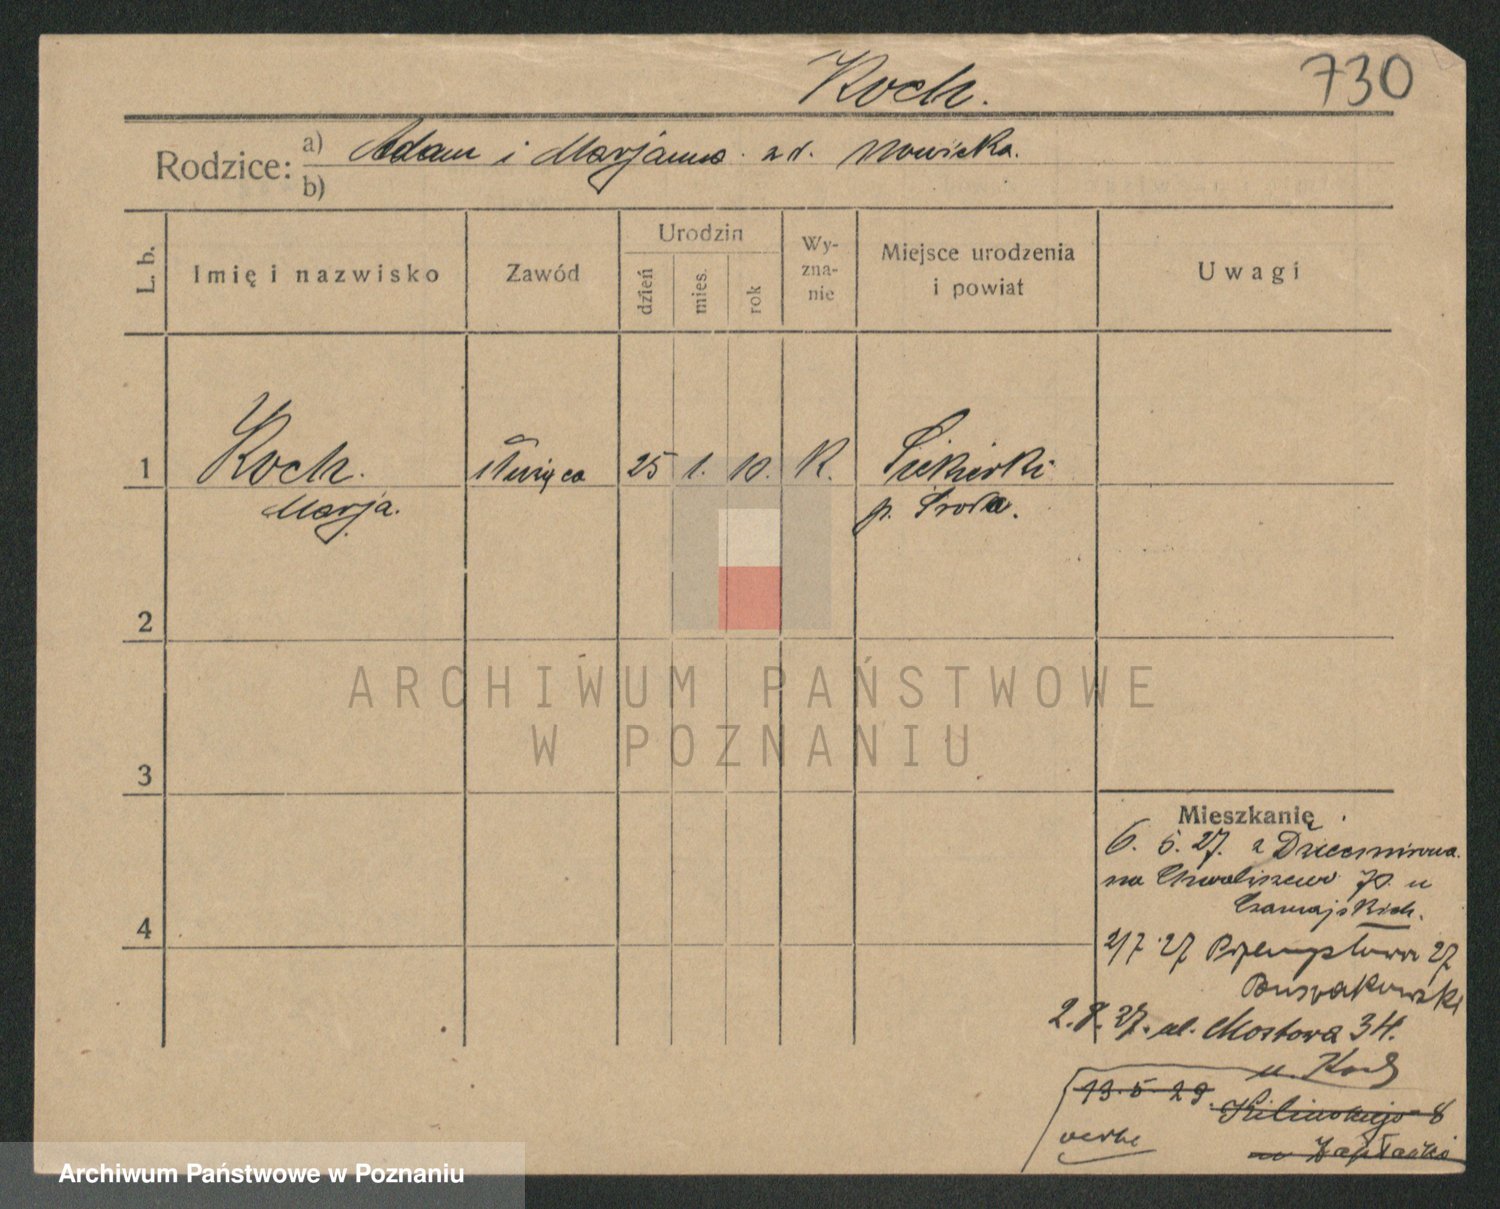 Koch.
730
Rodzice:
a) Adam i Marjanna zd. Nowicka.
b)
L. b.
Imię i nazwisko
Zawód
Urodzin
dzień
mies.
rok
Wy-
zna-
nie
Miejsce urodzenia
i powiat
Uwagi
1 Koch. służąca 25 1. 10. K. Siekierki
Marja. p. Środa.
2
ARCHIWUM PAŃSTWOWE
W POZNANIU
3
Mieszkanie
6. 5. 27. z
na Chwaliszewo 70. u
2/7 27 Przemysłowa 27
2.8.27. ul. Mostowa 34.
u. Koch
4
13.5.29. Kilińskiego 8
verte
Archiwum Państwowe w Poznaniu